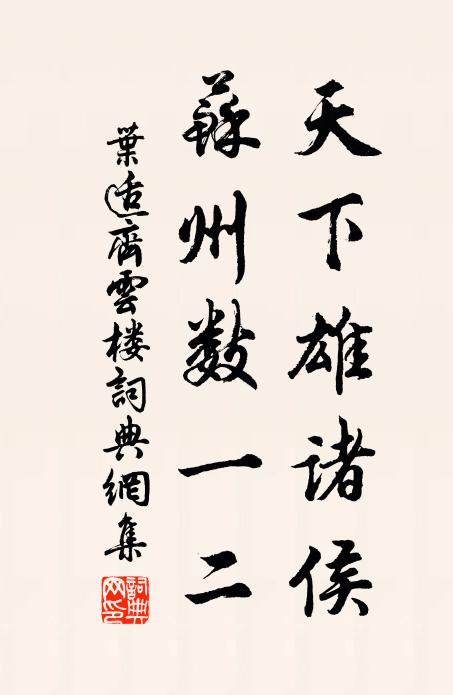 天下雄诸侯
蘇州数一二
葉适齊雲楼詞典網集
詞典网印